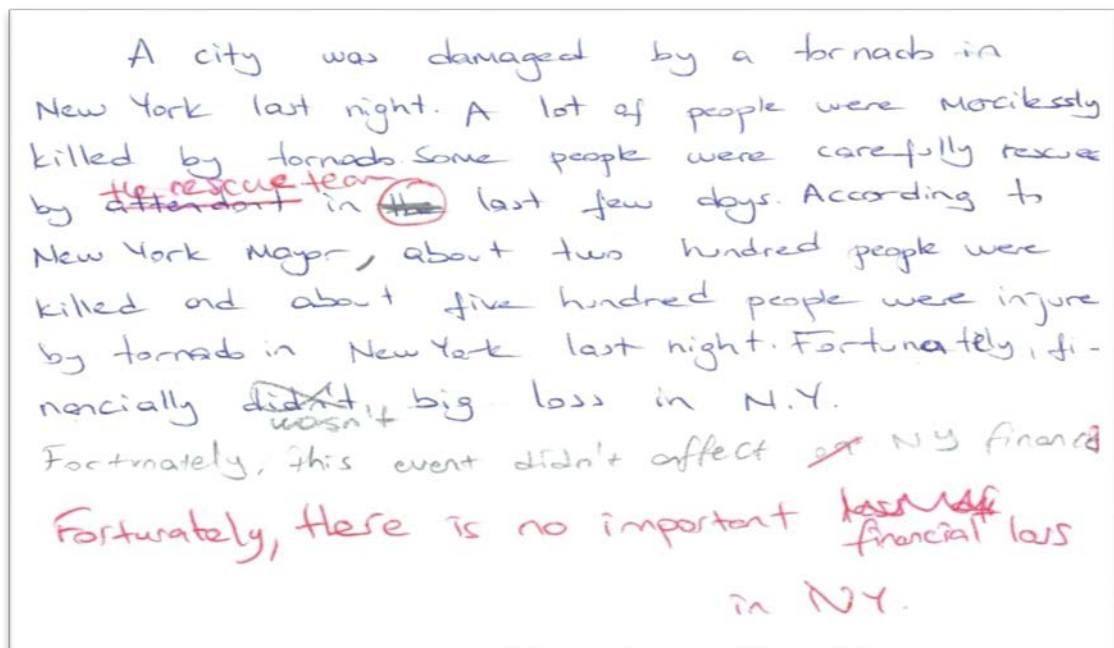 A city was damaged by a tornado in
New York last night. A lot of people were Mercilessly
killed by tornado. Some people were carefully rescue
the rescue team
by attendant in the last few days. According to
New York Mayor, about two hundred people were
killed and about five hundred people were injure
by tornado in New York last night. Fortunately, fi-
nancially didn't big loss in N.Y.
wasn't
Fortunately, this event didn't affect NY financ
Fortunately, there is no important
financial loss
in NY.